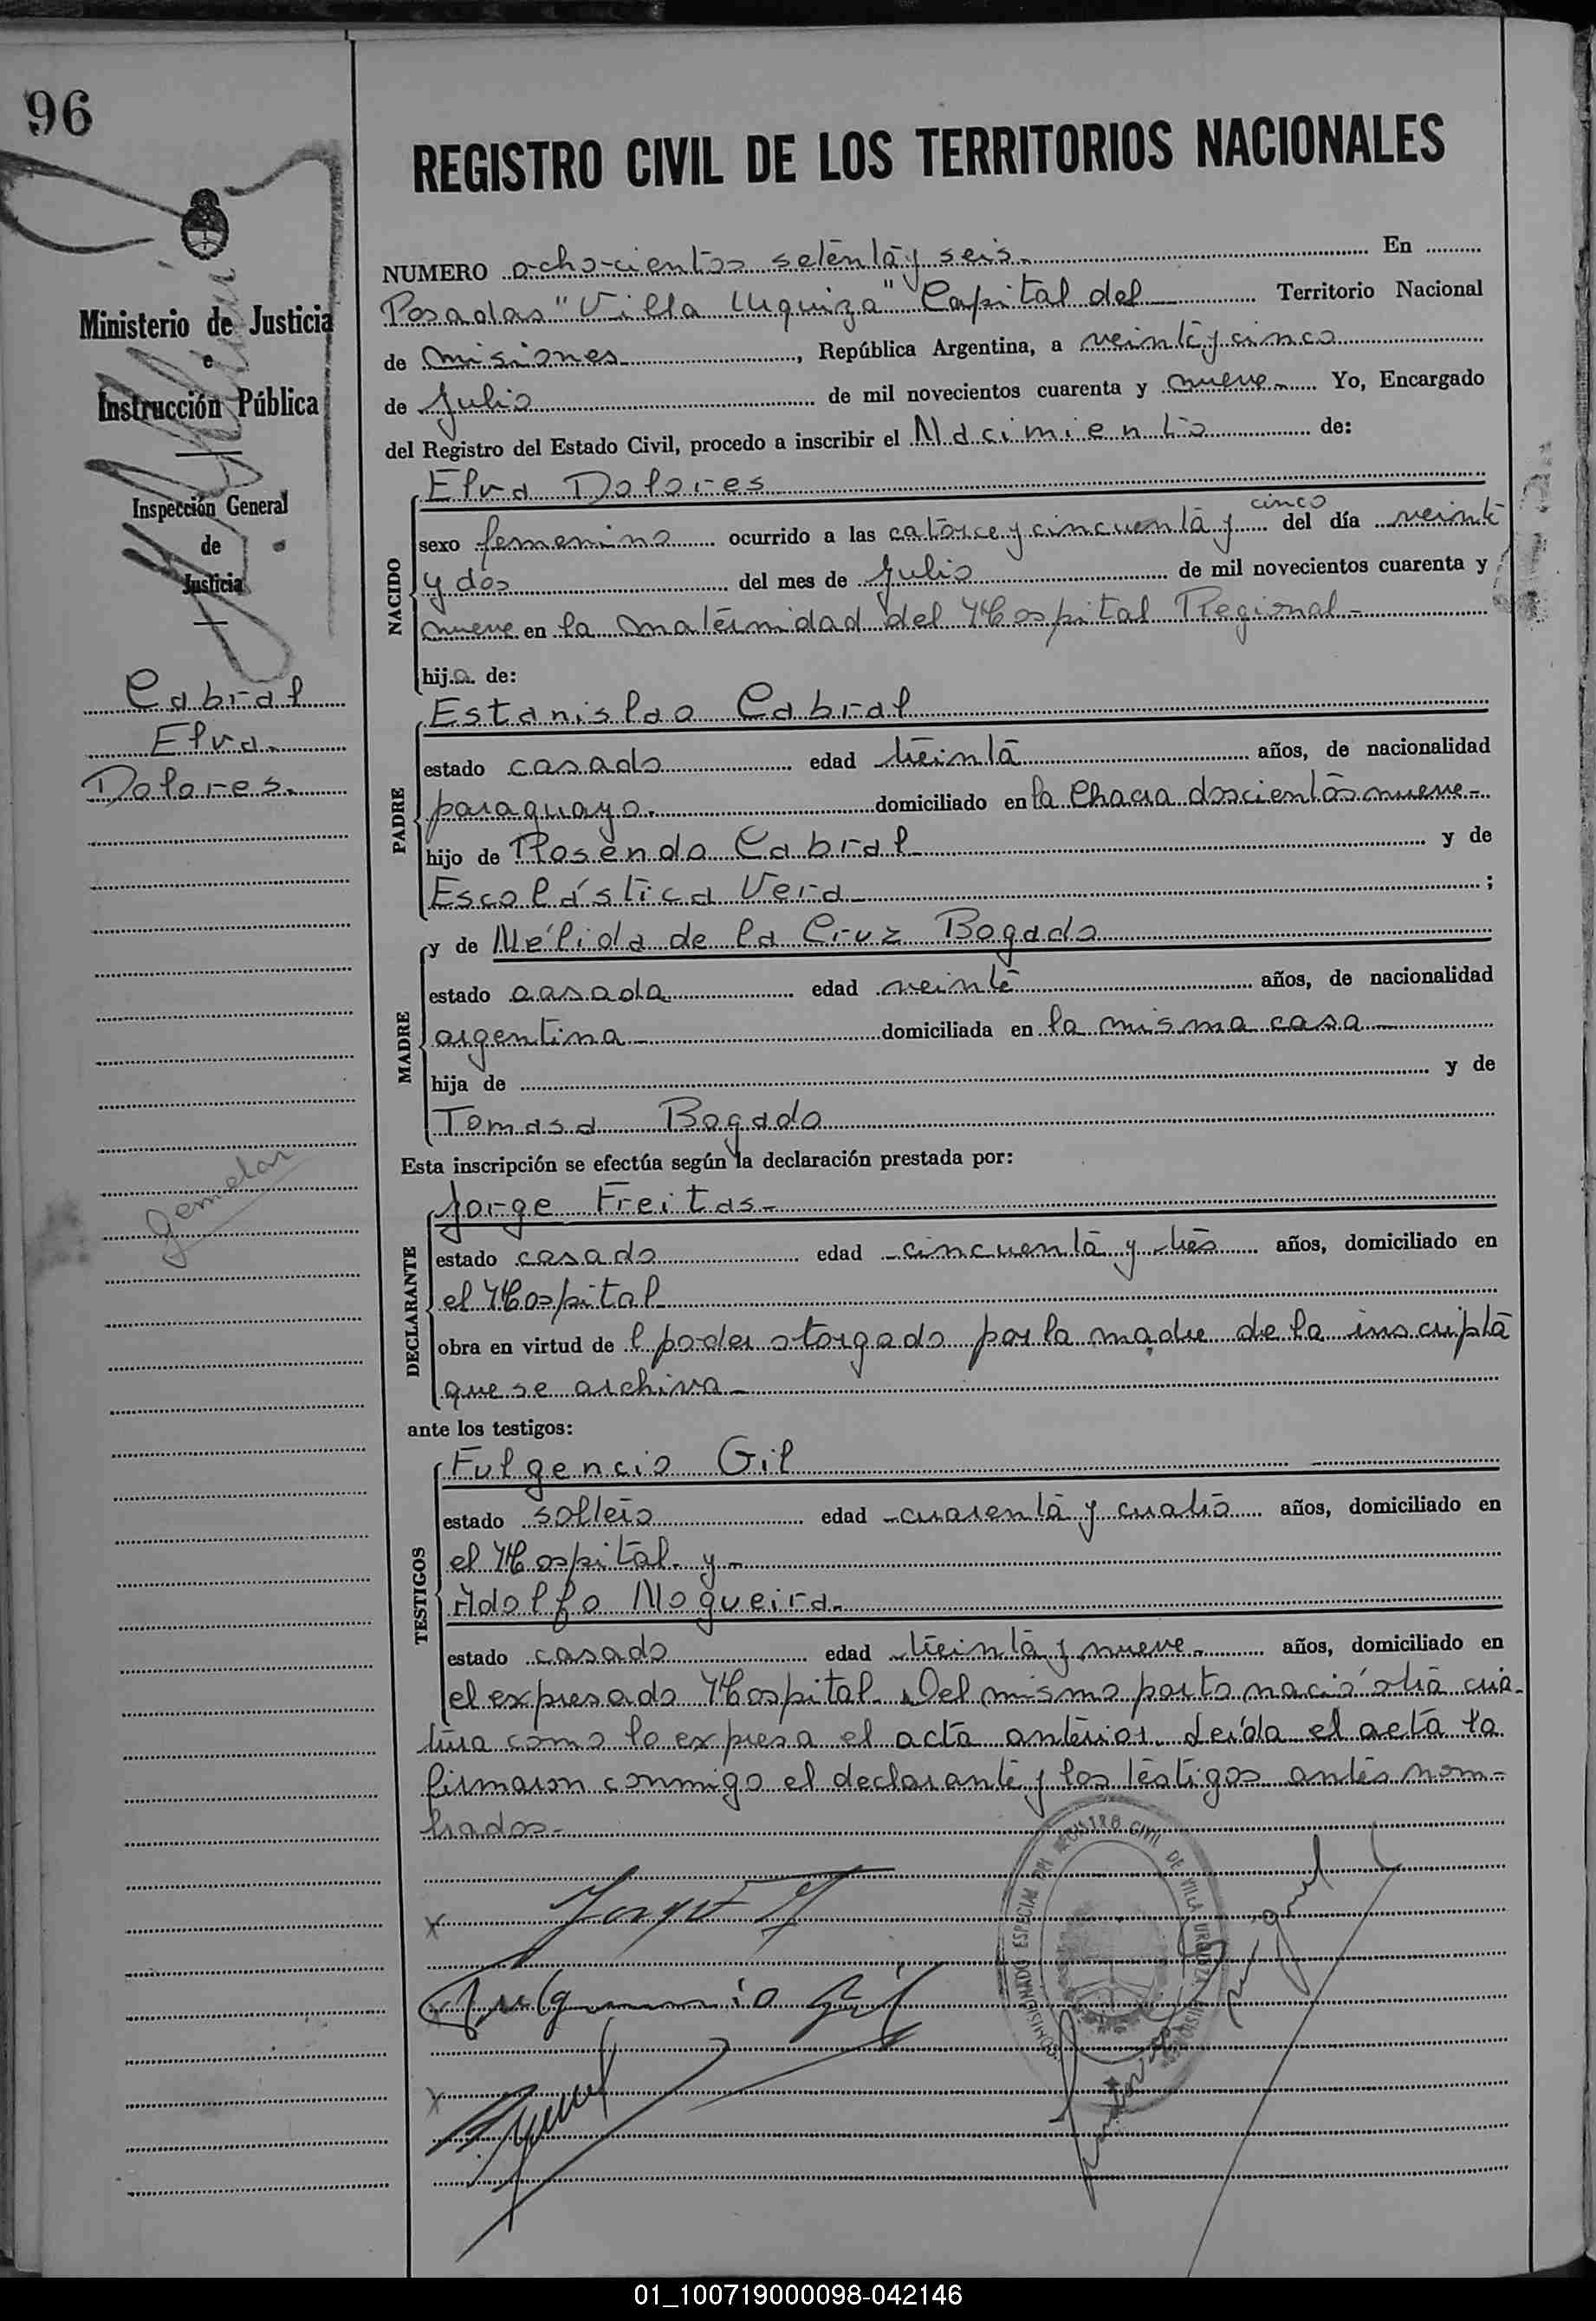 96
REGISTRO CIVIL DE LOS TERRITORIOS NACIONALES
Ministerio de Justicia
e
Instrucción Pública
Inspección General
de
Justicia
Cabral
Elva
Dolores.
gemelar
NUMERO ochocientos setenta y seis. En
Posadas "Villa Urquiza" Capital del Territorio Nacional
de Misiones, República Argentina, a veinte y cinco
de Julio de mil novecientos cuarenta y nueve Yo, Encargado
del Registro del Estado Civil, procedo a inscribir el Nacimiento de:
NACIDO
Elva Dolores
sexo femenino ocurrido a las catorce y cincuenta y cinco del día veinte
y dos del mes de Julio de mil novecientos cuarenta y
nueve en la maternidad del Hospital Regional -
hija de:
PADRE
Estanislao Cabral
estado casado edad treinta años, de nacionalidad
paraguayo. domiciliado en la Chacra doscientos nueve -
hijo de Rosendo Cabral y de
Escolástica Vera ;
MADRE
y de Nélida de la Cruz Bogado
estado casada edad veinte años, de nacionalidad
argentina domiciliada en la misma casa
hija de y de
Tomasa Bogado
Esta inscripción se efectúa según la declaración prestada por:
DECLARANTE
Jorge Freitas -
estado casado edad cincuenta y tres años, domiciliado en
el Hospital
obra en virtud del poder otorgado por la madre de la inscripta
que se archiva -
ante los testigos:
TESTIGOS
Fulgencio Gil
estado soltero edad cuarenta y cuatro años, domiciliado en
el Hospital. y -
Adolfo Nogueira.
estado casado edad treinta y nueve. años, domiciliado en
el expresado Hospital. Del mismo parto nació otra cria-
tura como lo expresa el acta anterior. Leída el acta la
firmaron conmigo el declarante y los testigos antes nom-
brados -
Jorge F
Fulgencio Gil
REGISTRO CIVIL DE VILLA URQUIZA
01_100719000098-042146